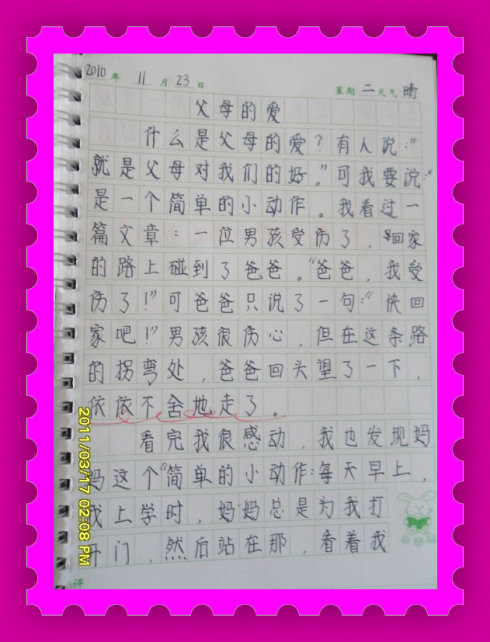 2010年 11月 23日 星期二 天气晴
父母的爱
什么是父母的爱？有人说：“
就是父母对我们的好。”可我要说：“
是一个简单的小动作。我看过一
篇文章：一位男孩受伤了，回家
的路上碰到了爸爸。“爸爸，我受
伤了！”可爸爸只说了一句：“快回
家吧！”男孩很伤心，但在这条路
的拐弯处，爸爸回头望了一下，
依依不舍地走了。
看完我很感动，我也发现妈
妈这个“简单的小动作：每天早上，
我上学时，妈妈总是为我打
开门，然后站在那，看着我
评
2011/03/17 02:08 PM